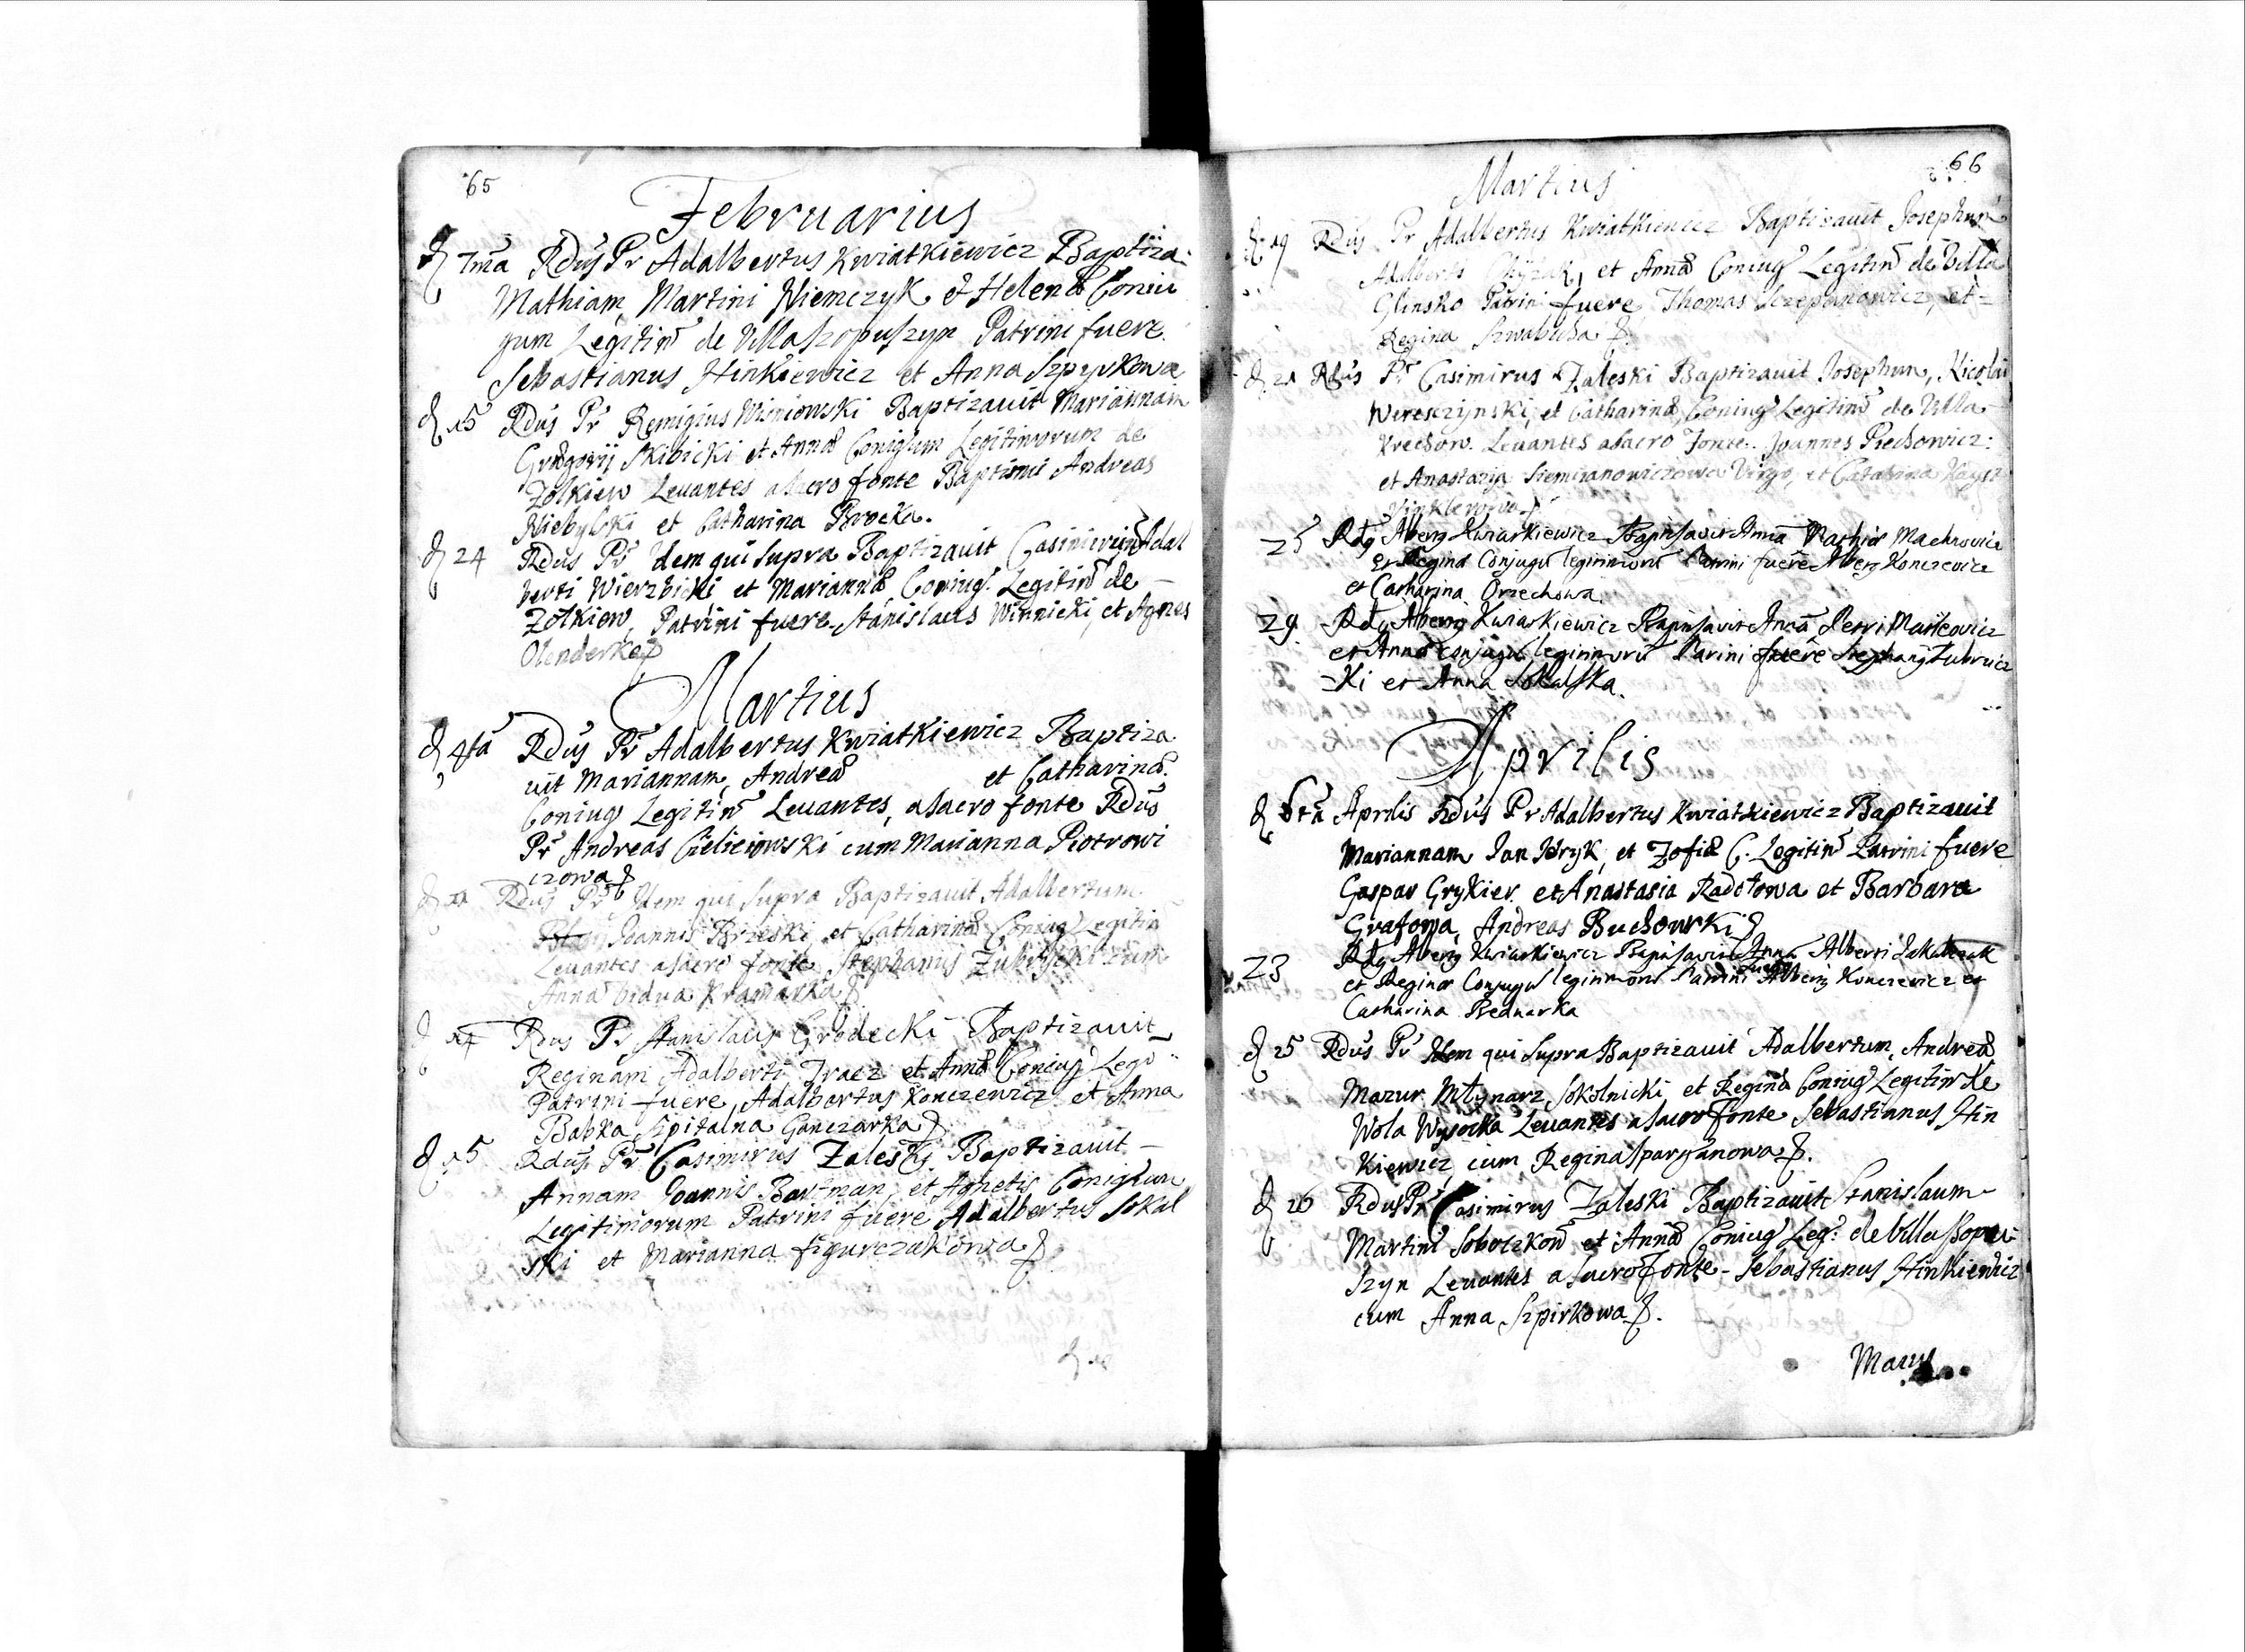 65
Februarius
d 7ma Rdus Pr Adalbertus Kwiatkiewicz Baptiza:
Mathiam, Martini Niemczyk et Helenæ Coniu
gum Legitim de Villa Szopuszyn Patrini fuere
Sebastianus Hinkiewicz et Anna Szpyrkowa
d 15 Rdus Pr Remigius Wisniowski Baptizavit Mariannam
Grægorij Skibicki et Annæ Coniglum Legitimorum de
Zolkiew Levantes a sacro fonte Baptismi Andreas
Niebylski et Catharina Brocka.
d 24 Rdus Pr Idem qui supra Baptizavit Casimirum Adal
berti Wierzbicki et Mariannæ Coniug. Legitim de
Zolkiew, Patrini fuere Stanislaus Winnicki, et Agnes
Olenderka
Martius
d 4ta Rdus Pr Adalbertus Kwiatkiewicz Baptiza
vit Mariannam, Andreæ et Catharinæ
Coniug Legitim Levantes, a sacro fonte Rdus
Pr Andreas Cieliciowski cum Marianna Piotrowi
czowa
d 11 Rdus Pr Idem qui supra Baptizavit Adalbertum
Joannis Brzeski et Catharinæ Coniug Legitim
Levantes a sacro fonte Stephanus Zubrzycki cum
Anna vidua Kramarka
d 14 Rdus Pr Stanislaus Grodecki Baptizavit
Reginam Adalberti Tracz et Annæ Coniug Legi
Patrini fuere, Adalbertus Konczewicz et Anna
Babka Szpitalna Ganczarka
d 15 Rdus Pr Casimirus Zaleski Baptizavit
Annam Joannis Bartman, et Agnetis Coniglum
Legitimorum Patrini fuere Adalbertus Sokal
ski et Marianna figurczakowa
66
Martius
d 19 Rdus Pr Adalbertus Kwiatkiewicz Baptizavit Josephum
Adalberti et Annæ Coniug Legitim de Villa
Glinsko Patrini fuere Thomas Szczepanowicz, et
Regina Szwabicha
d 21 Rdus Pr Casimirus Zaleski Baptizavit Josephum, Nicolai
Wereszczynski, et Catharinæ, Coniug Legitim de Villa
Krechow. Levantes a sacro fonte. Joannes Piechowicz:
et Anastazya Siemiranowiczowa Virgo, et Catarina
25 Rdus Alberg Kwiatkiewicz Baptisavit Annā Mathiæ Machnowicz
et Reginæ Conjugu legitimorū Patrini fuēre Alberg Konczewicz
et Catharina Orzechowa.
29 Rdus Alberg Kwiatkiewicz Baptisavit Annā Petri Mańkowicz
et Annæ Conjugū legitimorū Patrini fuēre Stephang Zubrzic
-ki et Anna Sokalska.
Aprilis
d 6ta Aprilis Rdus Pr Adalbertus Kwiatkiewicz Baptizavit
Mariannam Jan Jdryk, et Zofiæ C. Legitim Patrini fuere
Gaspar Grykier et Anastasia Radotowa et Barbara
Grafowa, Andreas Buchowski
23 Rdus Alberg Kwiatkiewicz Baptisavit Annā Alberti Jakubczak
et Reginæ Conjugū legitimorū Patrini fuere Alberg Konczewicz et
Catharina Bednarka
d 25 Rdus Pr Idem qui supra Baptizavit Adalbertum, Andreæ
Mazur Młynarz Sokolnicki et Reginæ Coniug Legitim de
Wola Wysocka Levantes a sacro fonte Sebastianus Hin
kiewicz cum Regina Sparzanowa
d 26 Rdus Pr Casimirus Zaleski Baptizavit Stanislaum
Martini Soboczkow et Annæ Coniug Leg: de Villa Szopu
szyn Levantes a sacro fonte Sebastianus Hinkiewicz
cum Anna Szpirkowa